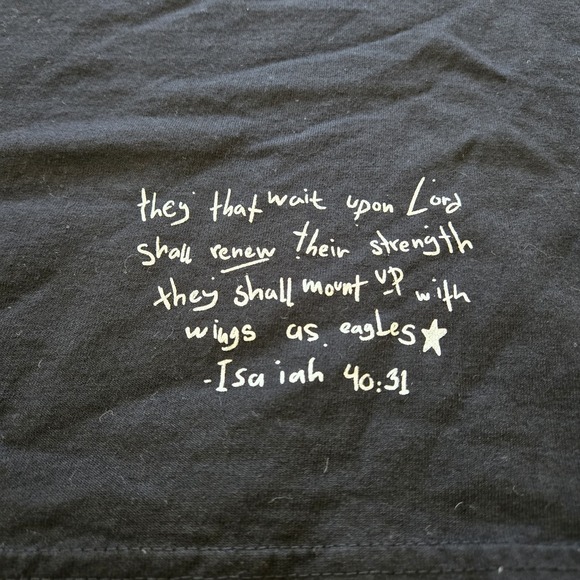 they that wait upon Lord
shall renew their strength
they shall mount up with
wings as eagles
-Isaiah 40:31